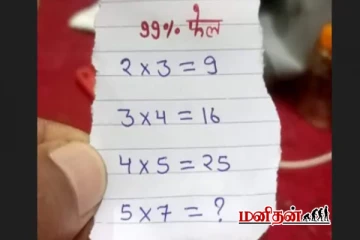 99% फेल
2 × 3 = 9
3 × 4 = 16
4 × 5 = 25
5 × 7 = ?
மனிதன்